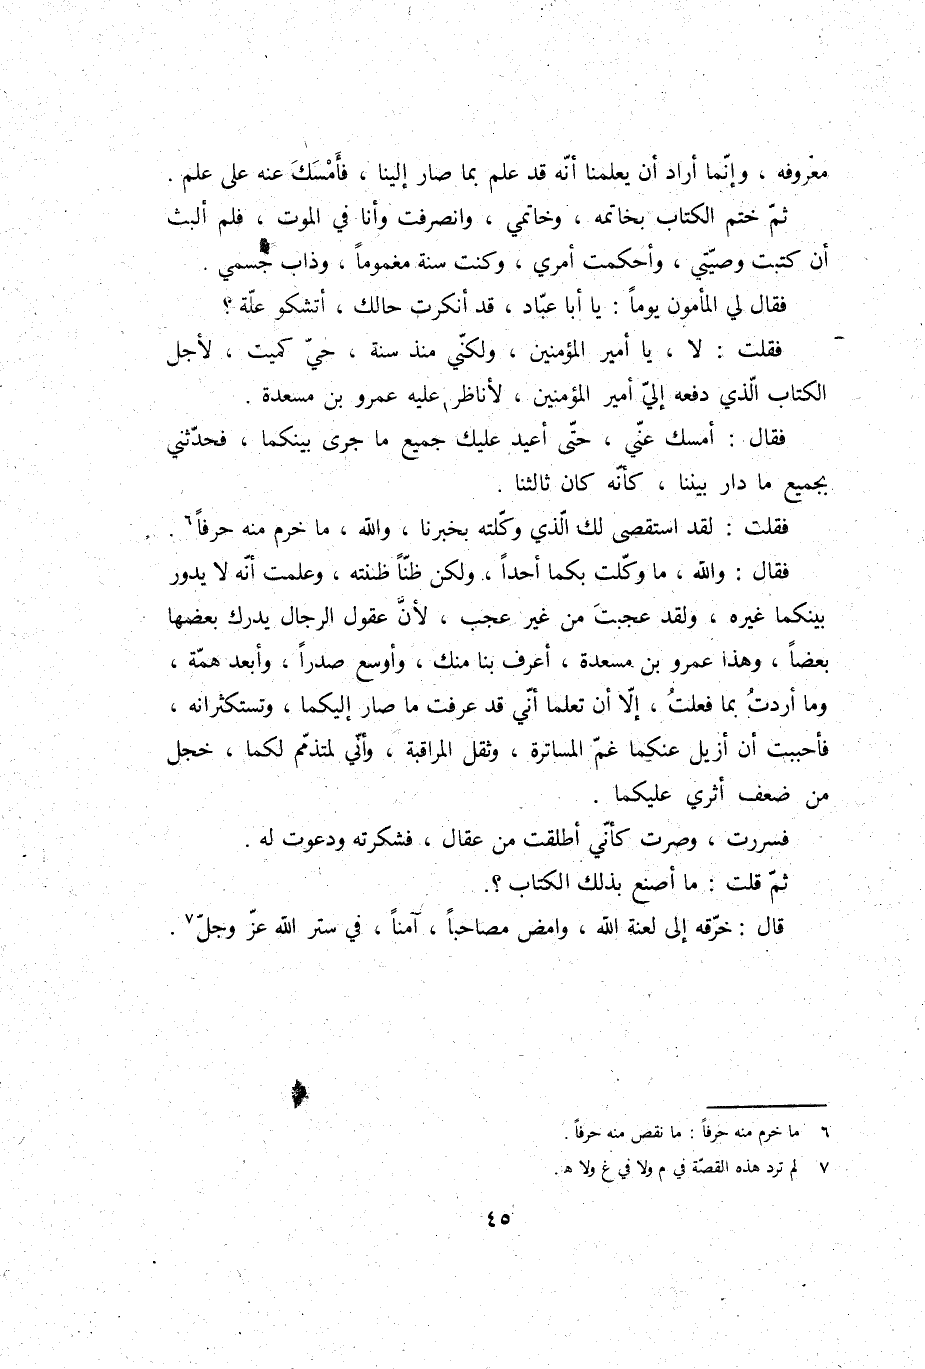 معْروفه ، وإنّما أراد أن يعلمنا أنّه قد علم بما صار إلينا ، فأَمْسَكَ عنه على علم .
ثمّ ختم الكتاب بخاتمه ، وخاتمي ، وانصرفت وأنا في الموت ، فلم ألبث
أن كتبت وصيّتي ، وأحكمت أمري ، وكنت سنة مغموماً ، وذاب جسمي .
فقال لي المأمون يوماً : يا أبا عبّاد ، قد أنكرت حالك ، أتشكو علّة ؟
فقلت : لا ، يا أمير المؤمنين ، ولكنّي منذ سنة ، حيّ كميت ، لأجل
الكتاب الّذي دفعه إليّ أمير المؤمنين ، لأناظر عليه عمرو بن مسعدة .
فقال : أمسك عنّي ، حتّى أعيد عليك جميع ما جرى بينكما ، فحدّثني
بجميع ما دار بيننا ، كأنّه كان ثالثنا .
فقلت : لقد استقصى لك الّذي وكّلته بخبرنا ، والله ، ما خرم منه حرفاً٦ .
فقال : والله ، ما وكّلت بكما أحداً ، ولكن ظنّاً ظننته ، وعلمت أنّه لا يدور
بينكما غيره ، ولقد عجبتَ من غير عجب ، لأنَّ عقول الرجال يدرك بعضها
بعضاً ، وهذا عمرو بن مسعدة ، أعرف بنا منك ، وأوسع صدراً ، وأبعد همّة ،
وما أردتُ بما فعلتُ ، إلّا أن تعلما أنّي قد عرفت ما صار إليكما ، وتستكثرانه ،
فأحببت أن أزيل عنكما غمّ المساترة ، وثقل المراقبة ، وأنّي لمتذمّم لكما ، خجل
من ضعف أثري عليكما .
فسررت ، وصرت كأنّي أطلقت من عقال ، فشكرته ودعوت له .
ثمّ قلت : ما أصنع بذلك الكتاب ؟.
قال : خرّقه إلى لعنة الله ، وامض مصاحباً ، آمناً ، في ستر الله عزّ وجلّ٧ .
٦ ما خرم منه حرفاً : ما نقص منه حرفاً .
٧ لم ترد هذه القصّة في م ولا في غ ولا ه .
٤٥